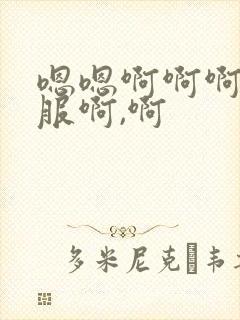 嗯嗯啊啊啊
服啊,啊
多米尼克·韦